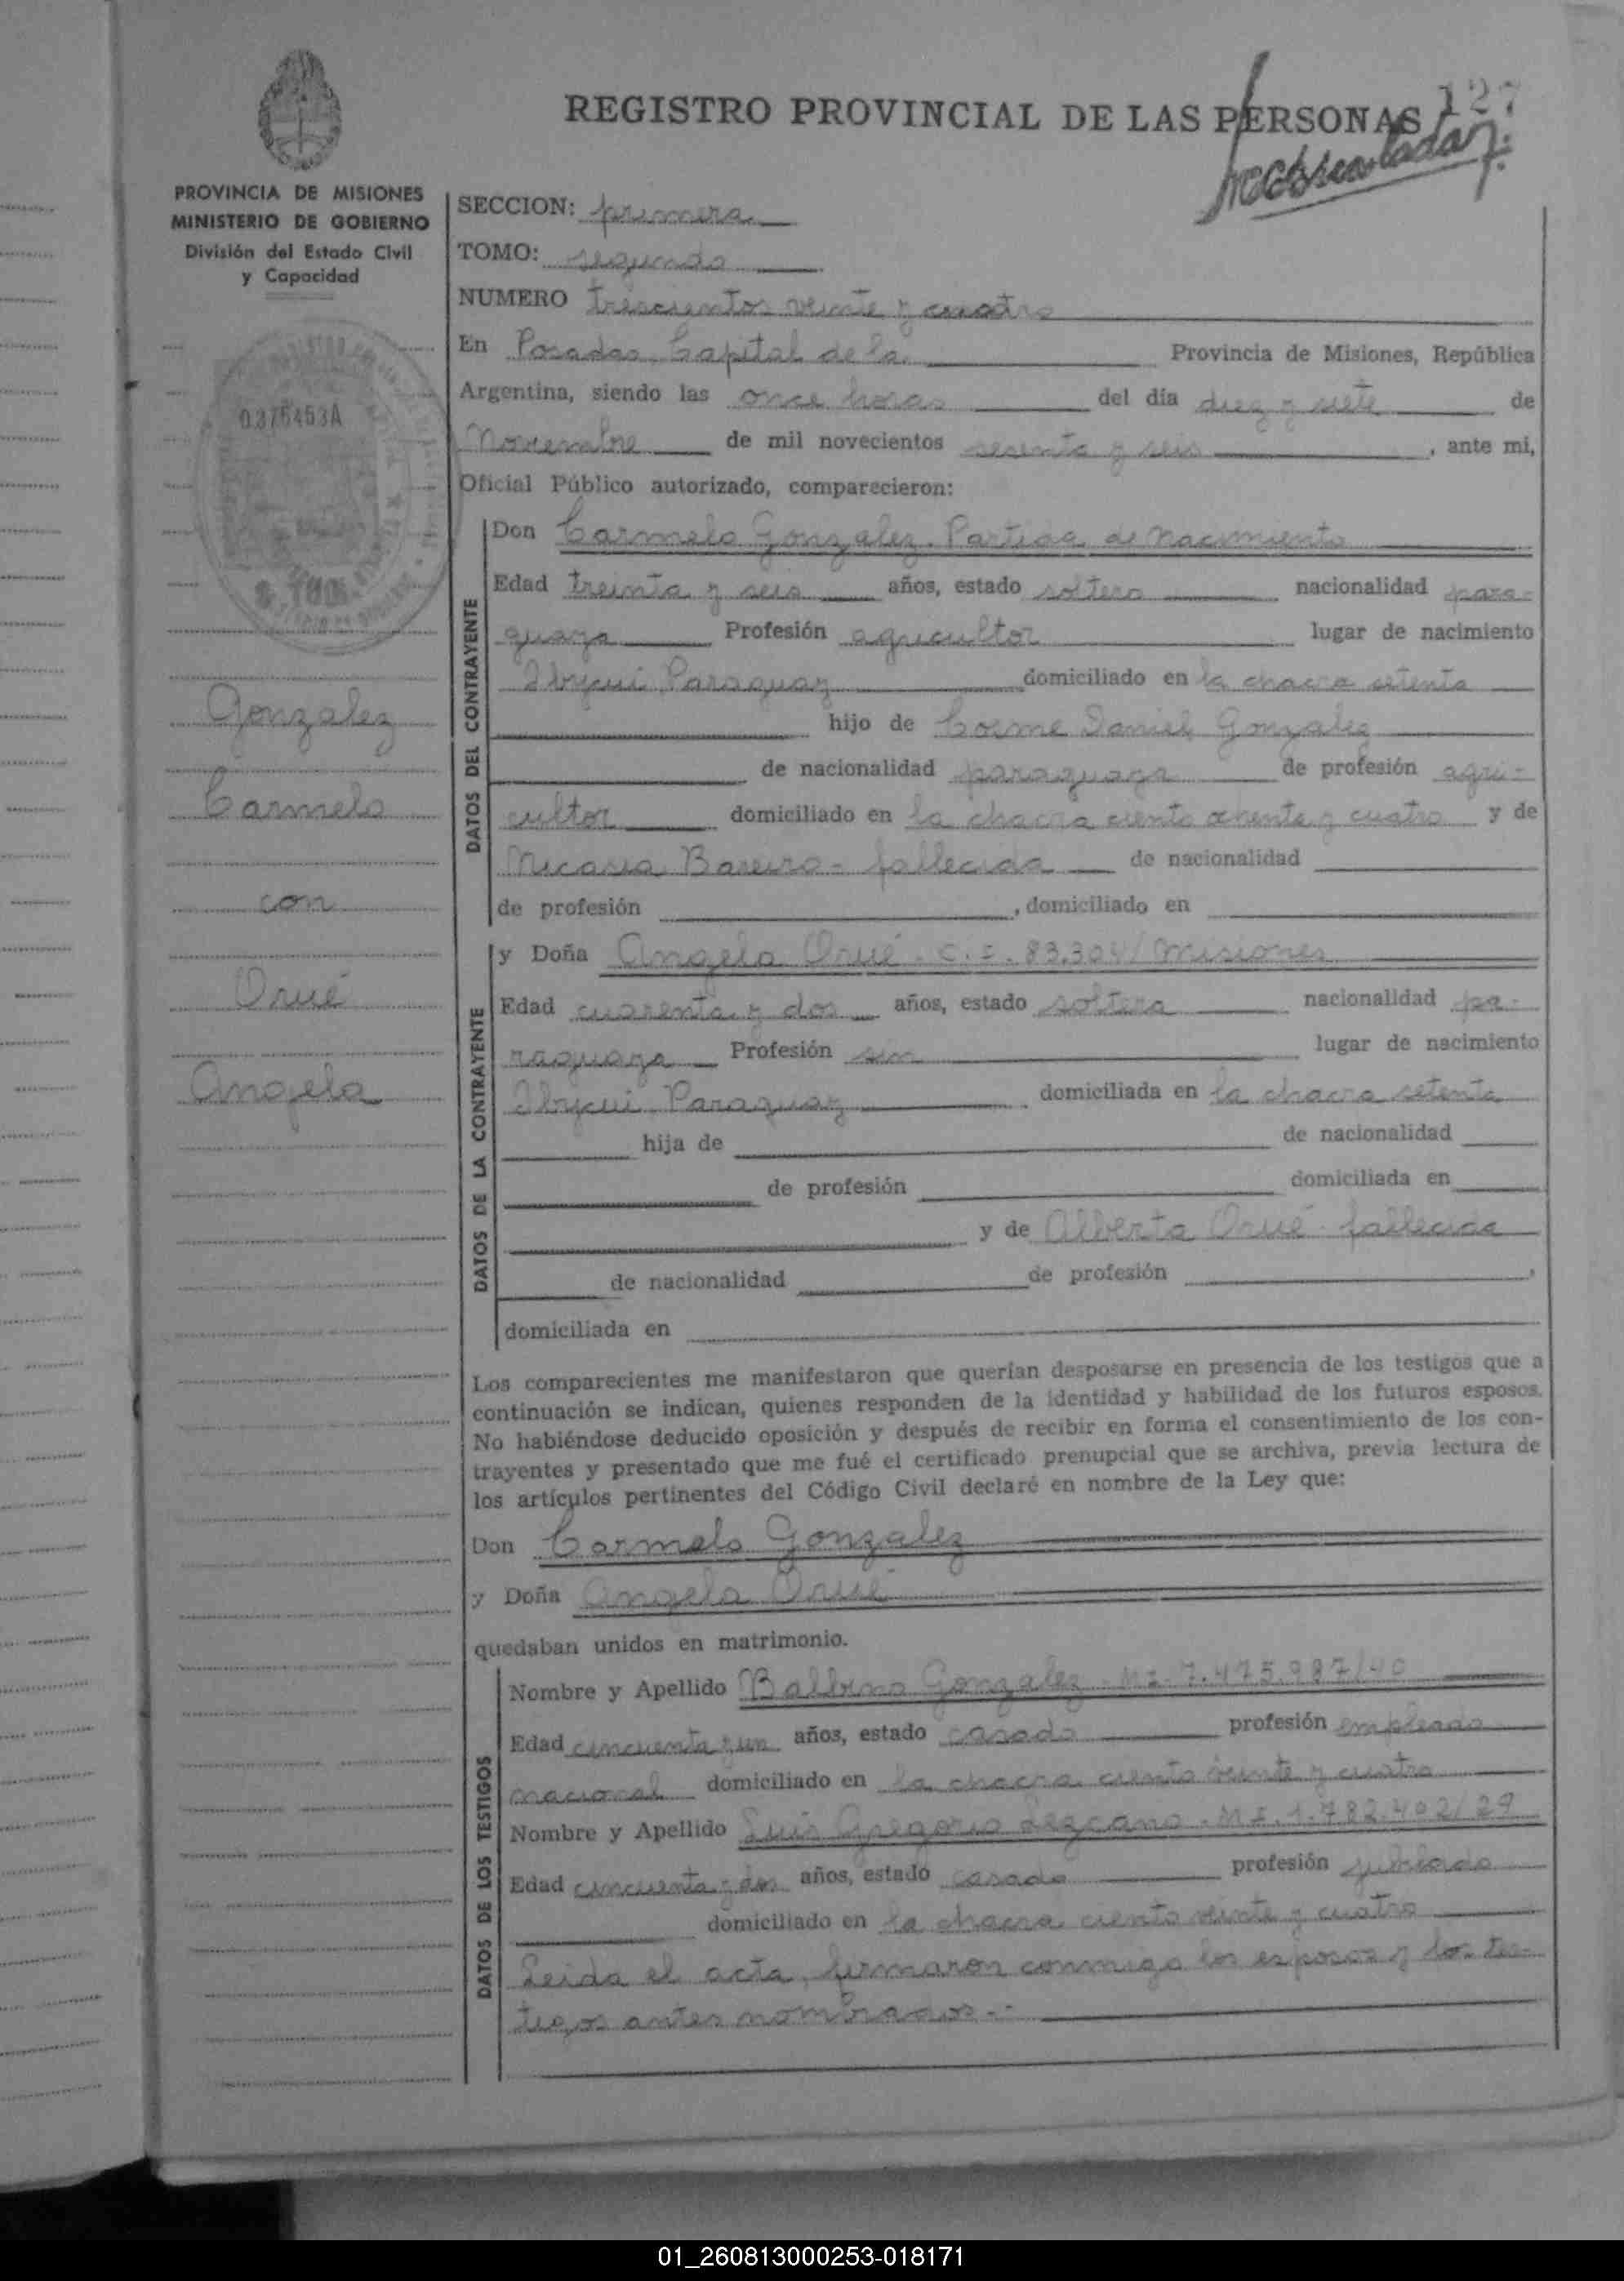 REGISTRO PROVINCIAL DE LAS PERSONAS
127
PROVINCIA DE MISIONES
MINISTERIO DE GOBIERNO
División del Estado Civil
y Capacidad
0376453A
Gonzalez
Carmelo
con
Orué
Angela
SECCION: primera
TOMO: segundo
NUMERO trescientos veinte y cuatro
En Posadas, Capital de la Provincia de Misiones, República
Argentina, siendo las once horas del día diez y siete de
Noviembre de mil novecientos sesenta y seis, ante mi,
Oficial Público autorizado, comparecieron:
DATOS DEL CONTRAYENTE
Don Carmelo Gonzalez. Partida de Nacimiento
Edad treinta y seis años, estado soltero nacionalidad para-
guaya Profesión agricultor lugar de nacimiento
Ibycui Paraguay domiciliado en la chacra setenta
hijo de Cosme Daniel Gonzalez
de nacionalidad paraguaya de profesión agri-
cultor domiciliado en la chacra ciento ochenta y cuatro y de
Bareiro - fallecida de nacionalidad
de profesión , domiciliado en
DATOS DE LA CONTRAYENTE
y Doña Angela Orué. C.I. 83.304/Misiones
Edad cuarenta y dos años, estado soltera nacionalidad pa-
raguaya Profesión sin lugar de nacimiento
Ibycui Paraguay domiciliada en la chacra setenta
hija de de nacionalidad
de profesión domiciliada en
y de Alberta Orué - fallecida
de nacionalidad de profesión ,
domiciliada en
Los comparecientes me manifestaron que querían desposarse en presencia de los testigos que a
continuación se indican, quienes responden de la identidad y habilidad de los futuros esposos.
No habiéndose deducido oposición y después de recibir en forma el consentimiento de los con-
trayentes y presentado que me fué el certificado prenupcial que se archiva, previa lectura de
los artículos pertinentes del Código Civil declaré en nombre de la Ley que:
Don Carmelo Gonzalez
y Doña Angela Orué
quedaban unidos en matrimonio.
DATOS DE LOS TESTIGOS
Nombre y Apellido Balbino Gonzalez - M.I. 7.475.987/40
Edad cincuenta y un años, estado casado profesión empleado
nacional domiciliado en la chacra ciento veinte y cuatro
Nombre y Apellido Luis Gregorio Lezcano - M.I. 1.782.402/29
Edad cincuenta y dos años, estado casado profesión jubilado
domiciliado en la chacra ciento veinte y cuatro
Leida el acta, firmaron conmigo los esposos y los tes-
tigos antes nombrados.-
01_260813000253-018171